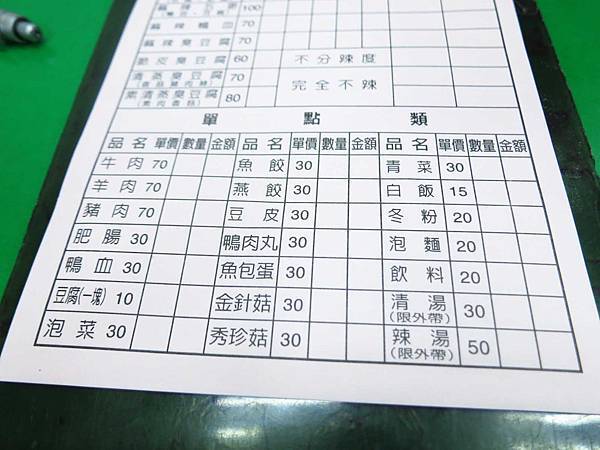 100
麻辣鴨血 70
麻辣臭豆腐 70
脆皮臭豆腐 60 不分辣度
清蒸臭豆腐 70 完全不辣
素清蒸臭豆腐 80
(素肉香菇)
單點類
品名 單價 數量 金額 品名 單價 數量 金額 品名 單價 數量 金額
牛肉 70 魚餃 30 青菜 30
羊肉 70 燕餃 30 白飯 15
豬肉 70 豆皮 30 冬粉 20
肥腸 30 鴨肉丸 30 泡麵 20
鴨血 30 魚包蛋 30 飲料 20
豆腐(一塊) 10 金針菇 30 清湯 30
(限外帶)
泡菜 30 秀珍菇 30 辣湯 50
(限外帶)